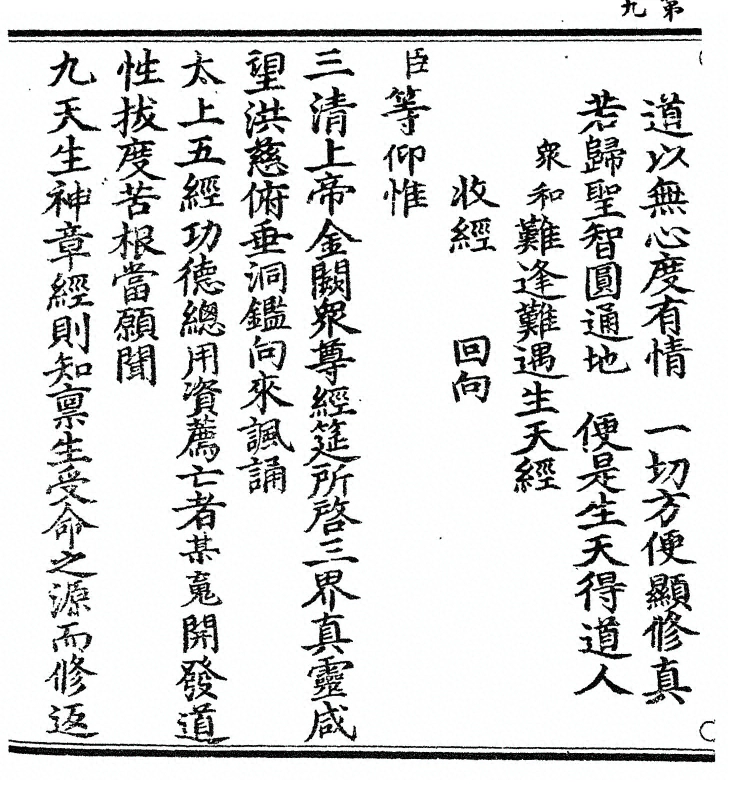 第
九
道以無心度有情　一切方便顯修真
若歸聖智圓通地　便是生天得道人
衆和難逢難遇生天經
收經　回向
臣等仰惟
三清上帝金闕衆尊經筵所啓三界真靈咸
望洪慈俯垂洞鑑向來諷誦
太上五經功德總用資薦亡者某䰟開發道
性拔度苦根當願聞
九天生神章經則知禀生受命之源而修返